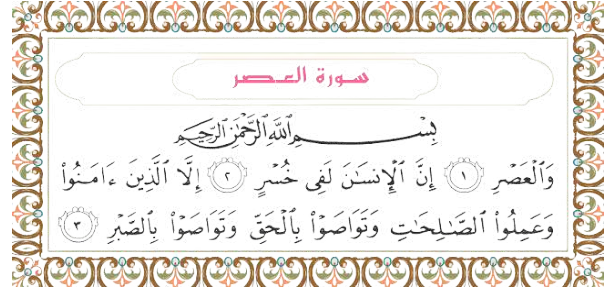 سورة العصر
بِسْمِ اللَّهِ الرَّحْمَٰنِ الرَّحِيمِ
وَالْعَصْرِ ١ إِنَّ الْإِنسَـٰنَ لَفِى خُسْرٍ ٢ إِلَّا الَّذِينَ ءَامَنُوا۟
وَعَمِلُوا۟ الصَّـٰلِحَـٰتِ وَتَوَاصَوْا۟ بِالْحَقِّ وَتَوَاصَوْا۟ بِالصَّبْرِ ٣